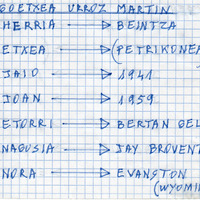 GOETXEA URROZ MARTIN
HERRIA → BEINTZA
ETXEA → (PETRIKONEA
JAIO → 1941
JOAN → 1959
ETORRI → BERTAN GEL
NAGUSIA → JAY BROVENT
NORA → EVANSTON
(WYOMI